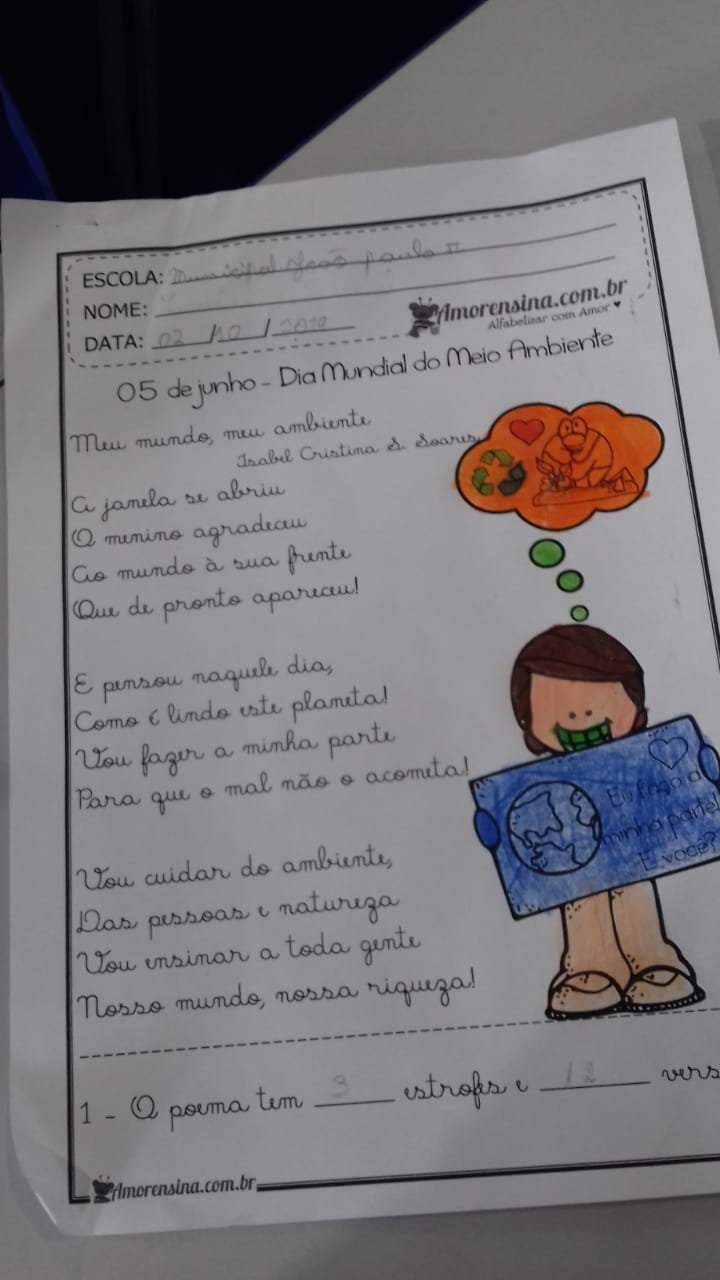 ESCOLA: Municipal João paulo II
NOME:
DATA: 02 / 10 / 2019
Amorensina.com.br
Alfabetizar com Amor
05 de junho - Dia Mundial do Meio Ambiente
Meu mundo, meu ambiente
Isabel Cristina S. Soares
A janela se abriu
O menino agradeceu
Ao mundo à sua frente
Que de pronto apareceu!
E pensou naquele dia,
Como é lindo este planeta!
Vou fazer a minha parte
Para que o mal não o acometa!
Eu faço a
minha parte!
E você?
Vou cuidar do ambiente,
Das pessoas e natureza
Vou ensinar a toda gente
Nosso mundo, nossa riqueza!
1 - O poema tem 3 estrofes e 12 vers
Amorensina.com.br